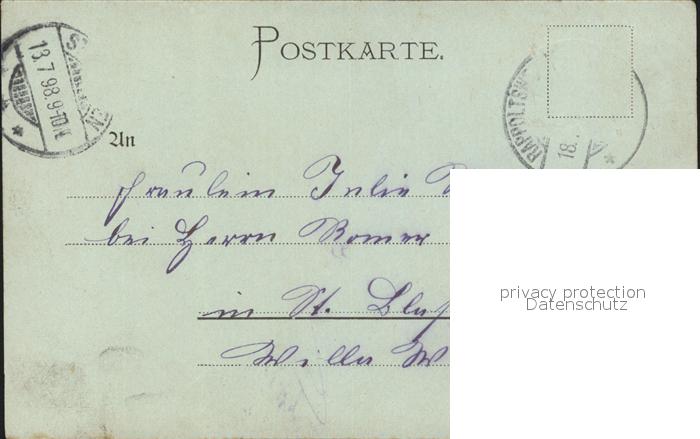 POSTKARTE.
13.7.98.9-10.V.
RAPPOLTSW
18.
An
Fräulein Julie
bei Herrn Romer
in St. Blas
Willa W
privacy protection
Datenschutz